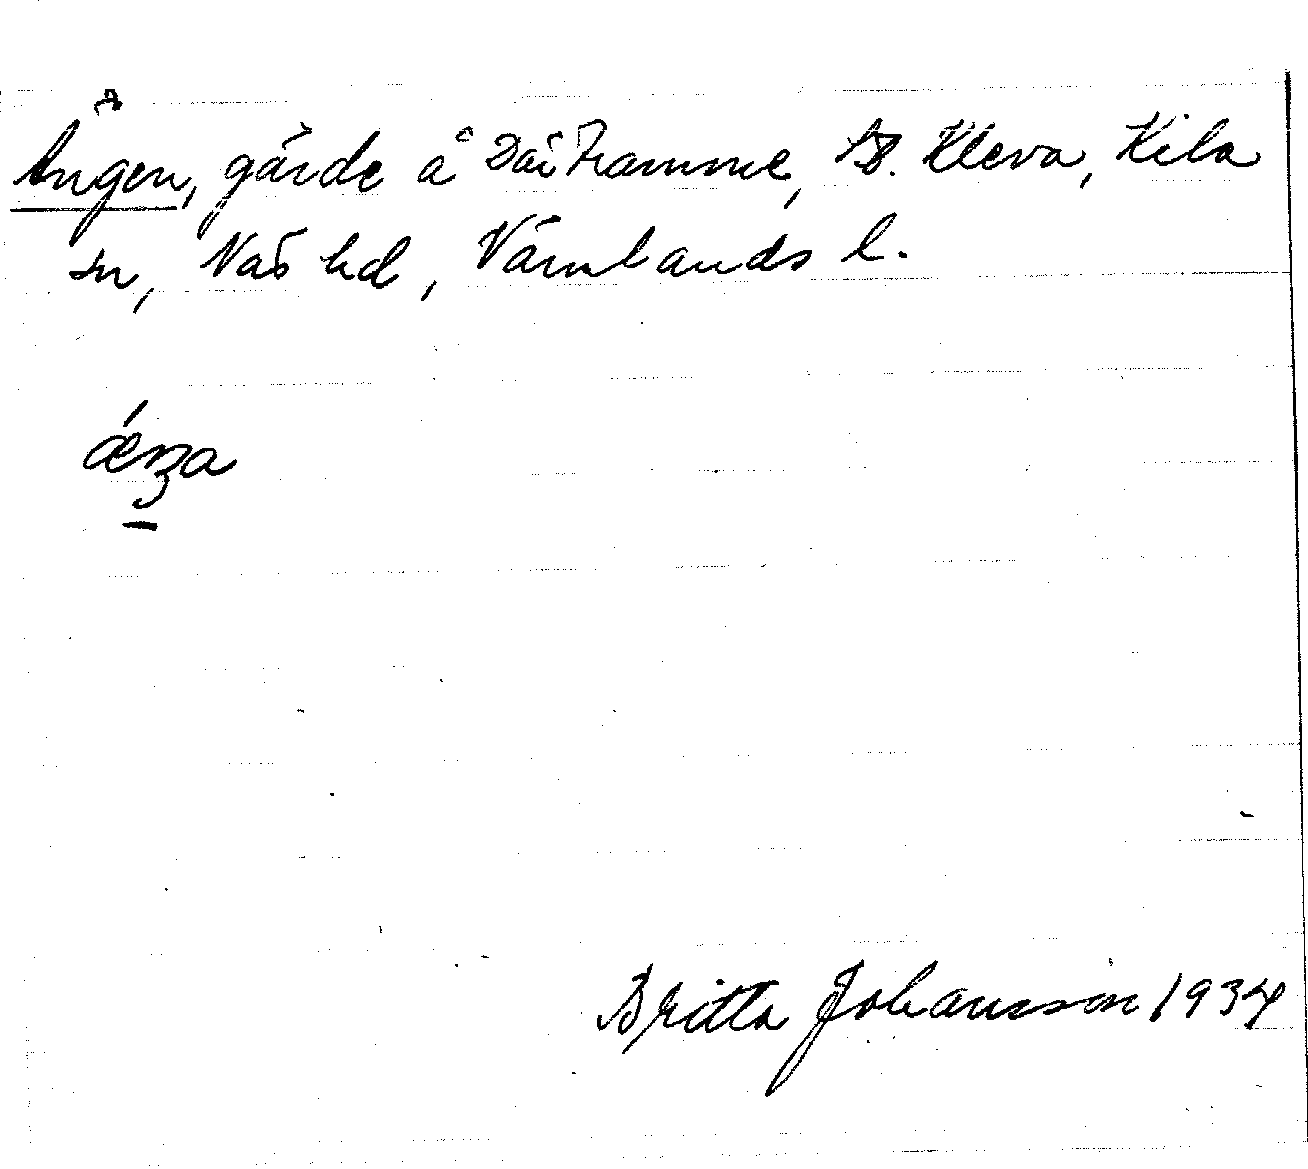 Ängen, gärde å Där framme, St. Kleva, Kila
sn, Näs hd, Värmlands l.
ǽŋa
Britta Johansson 1934